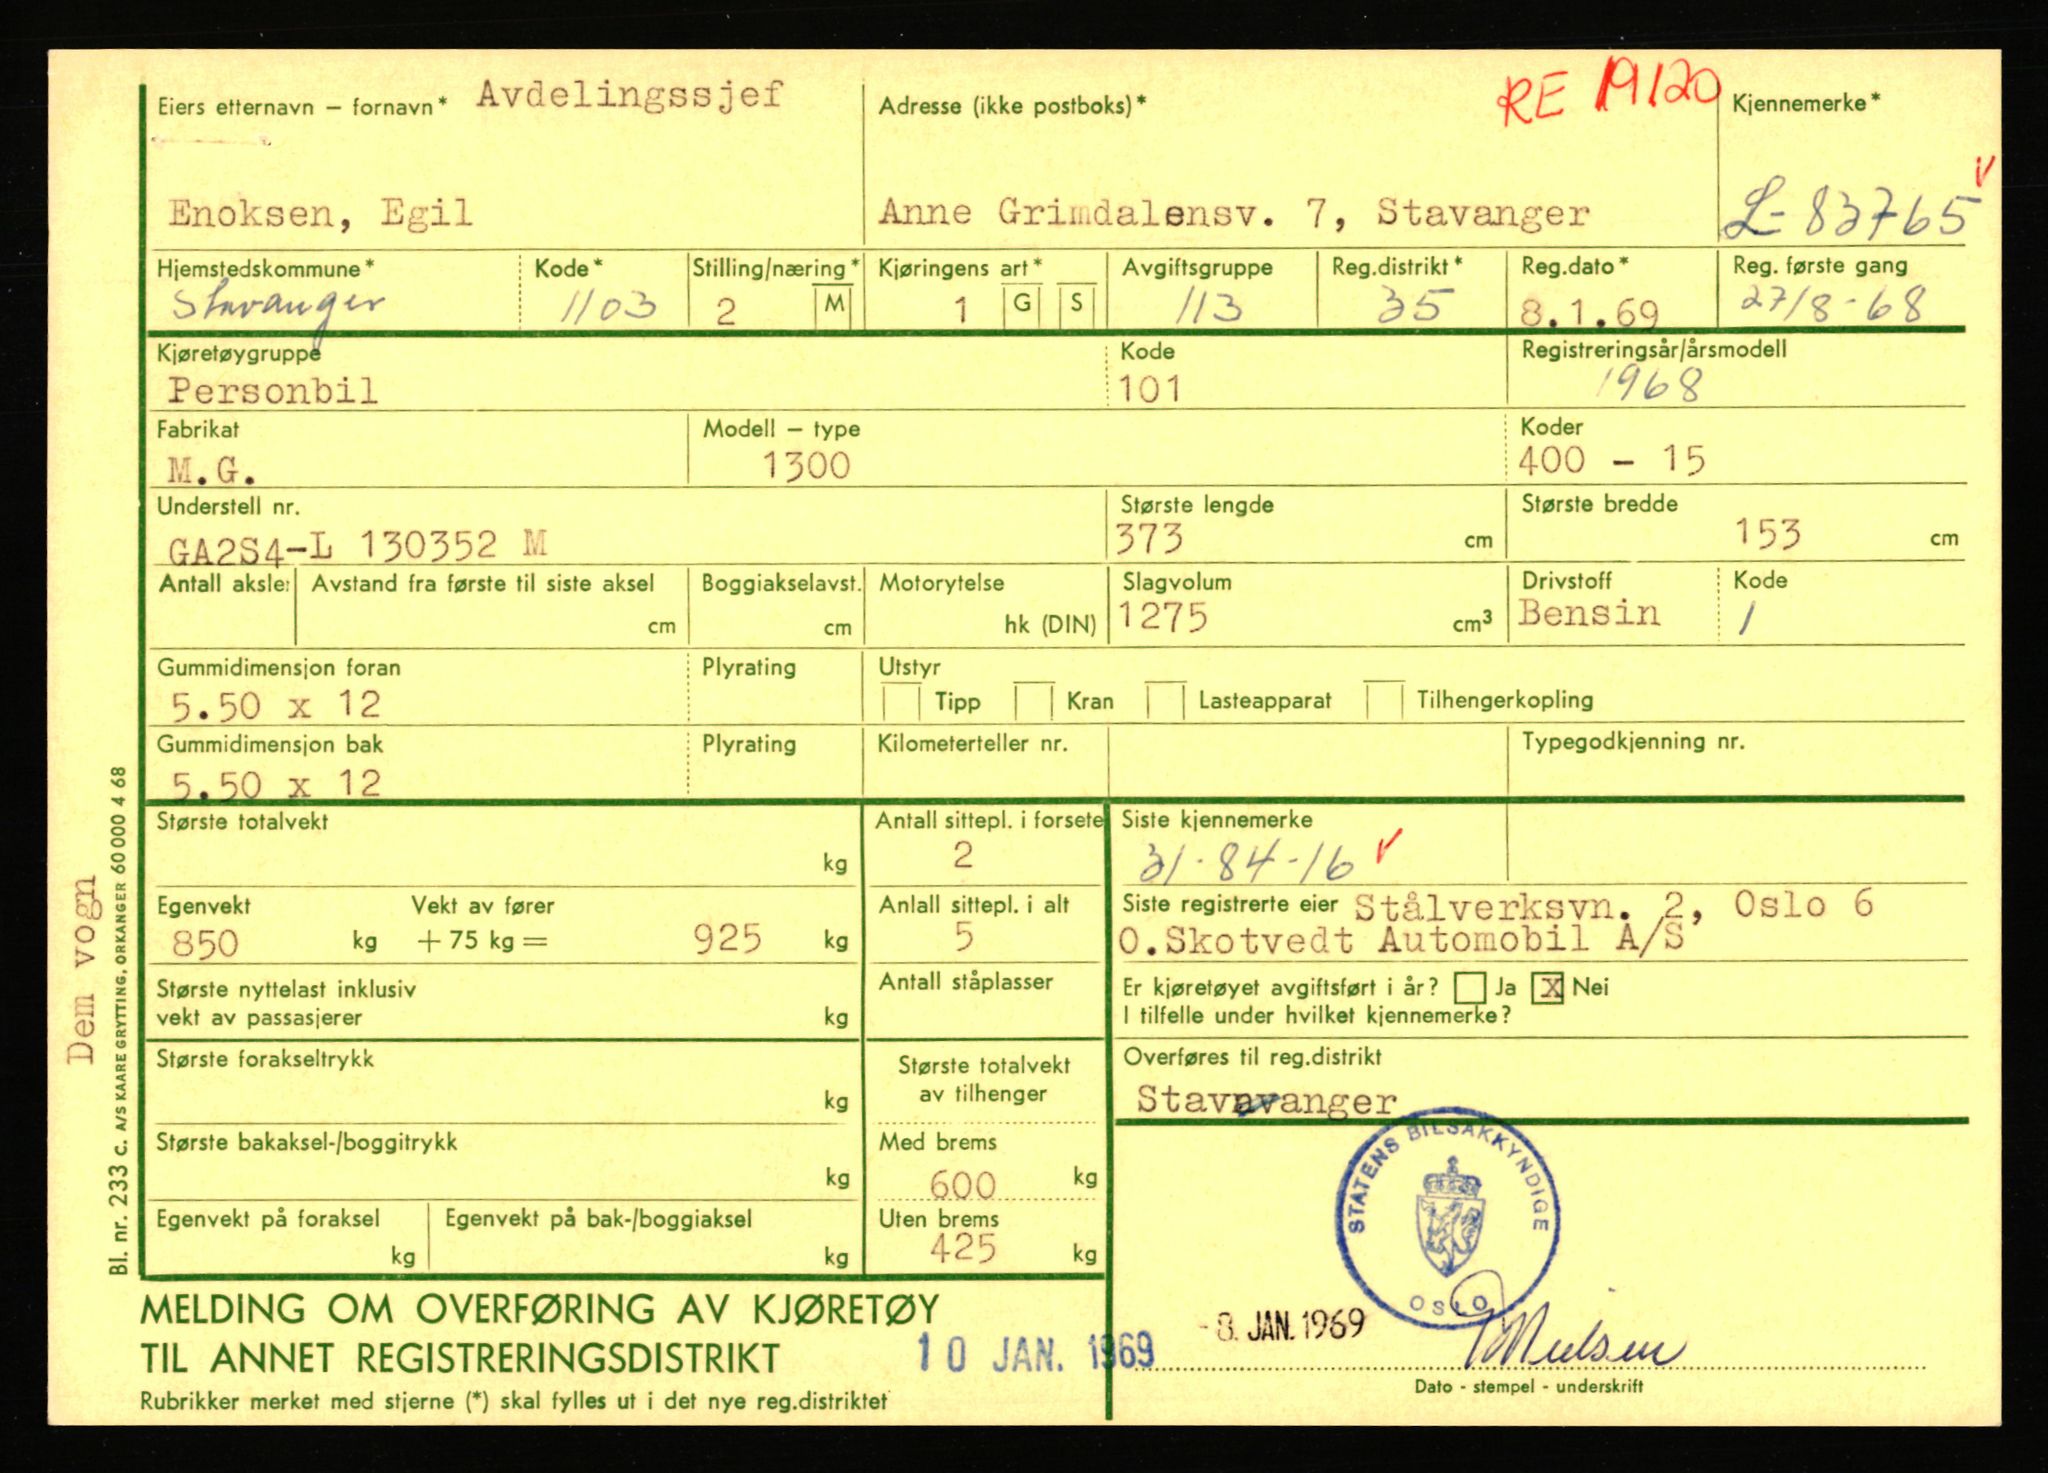 RE 19120
Eiers etternavn – fornavn* Avdelingssjef
Adresse (ikke postboks)*
Kjennemerke*
Enoksen, Egil
Anne Grimdalensv. 7, Stavanger
L-83765
Hjemstedskommune* Kode* Stilling/næring* Kjøringens art* Avgiftsgruppe Reg.distrikt* Reg.dato* Reg. første gang
Stavanger 1103 2 M 1 G S 113 35 8.1.69 27/8-68
Kjøretøygruppe Kode Registreringsår/årsmodell
Personbil 101 1968
Fabrikat Modell – type Koder
M.G. 1300 400 - 15
Understell nr. Største lengde Største bredde
GA2S4-L 130352 M 373 cm 153 cm
Antall aksler Avstand fra første til siste aksel Boggiakselavst. Motorytelse Slagvolum Drivstoff Kode
cm cm hk (DIN) 1275 cm³ Bensin 1
Gummidimensjon foran Plyrating Utstyr
5.50 x 12 Tipp Kran Lasteapparat Tilhengerkopling
Gummidimensjon bak Plyrating Kilometerteller nr. Typegodkjenning nr.
5.50 x 12
Største totalvekt Antall sittepl. i forsete Siste kjennemerke
kg 2 31-84-16
Egenvekt Vekt av fører Anlall sittepl. i alt Siste registrerte eier Stålverksvn. 2, Oslo 6
850 kg + 75 kg = 925 kg 5 O.Skotvedt Automobil A/S
Største nyttelast inklusiv Antall ståplasser Er kjøretøyet avgiftsført i år? Ja X Nei
vekt av passasjerer kg I tilfelle under hvilket kjennemerke?
Største forakseltrykk Største totalvekt Overføres til reg.distrikt
kg av tilhenger Stavavanger
Største bakaksel-/boggitrykk Med brems
kg 600 kg
Egenvekt på foraksel Egenvekt på bak-/boggiaksel Uten brems
kg kg 425 kg
STATENS BILSAKKYNDIGE
OSLO
MELDING OM OVERFØRING AV KJØRETØY
TIL ANNET REGISTRERINGSDISTRIKT
10 JAN. 1969
-8. JAN. 1969
Nielsen
Dato - stempel - underskrift
Rubrikker merket med stjerne (*) skal fylles ut i det nye reg.distriktet
Dem vogn
Bl. nr. 233 c. A/S KAARE GRYTTING, ORKANGER 60 000 4 68